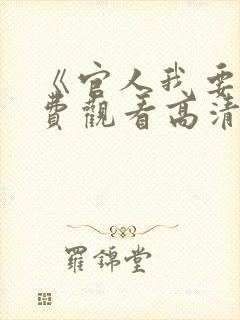 《官人我要
費觀看高清
羅錦堂